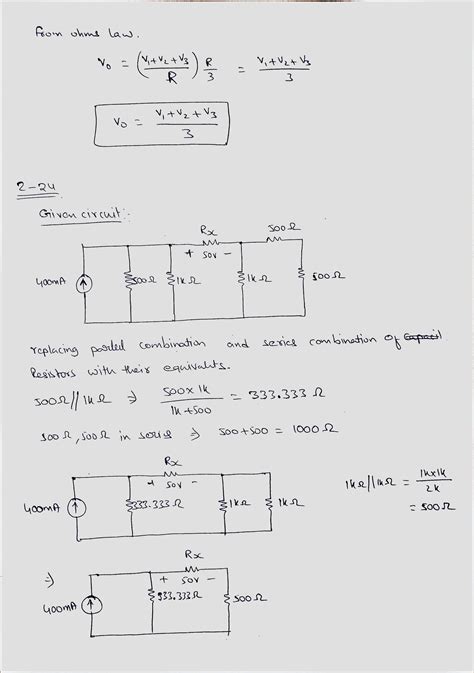 From ohms law.
V₀ = (V₁+V₂+V₃ / R) R/3 = V₁+V₂+V₃ / 3
V₀ = V₁+V₂+V₃ / 3
2-24
Given circuit:-
Rx 500Ω
+ 50V -
400mA 500Ω 1kΩ 1kΩ 500Ω
replacing parllel combination and series combination of
Resistors with their equivalents.
500Ω//1kΩ ⇒ 500×1k / 1k+500 = 333.333Ω
500Ω, 500Ω in series ⇒ 500+500 = 1000Ω
Rx
+ 50V -
400mA 333.333Ω 1kΩ 1kΩ
1kΩ//1kΩ = 1k×1k / 2k
= 500Ω
Rx
⇒ + 50V -
400mA 333.333Ω 500Ω